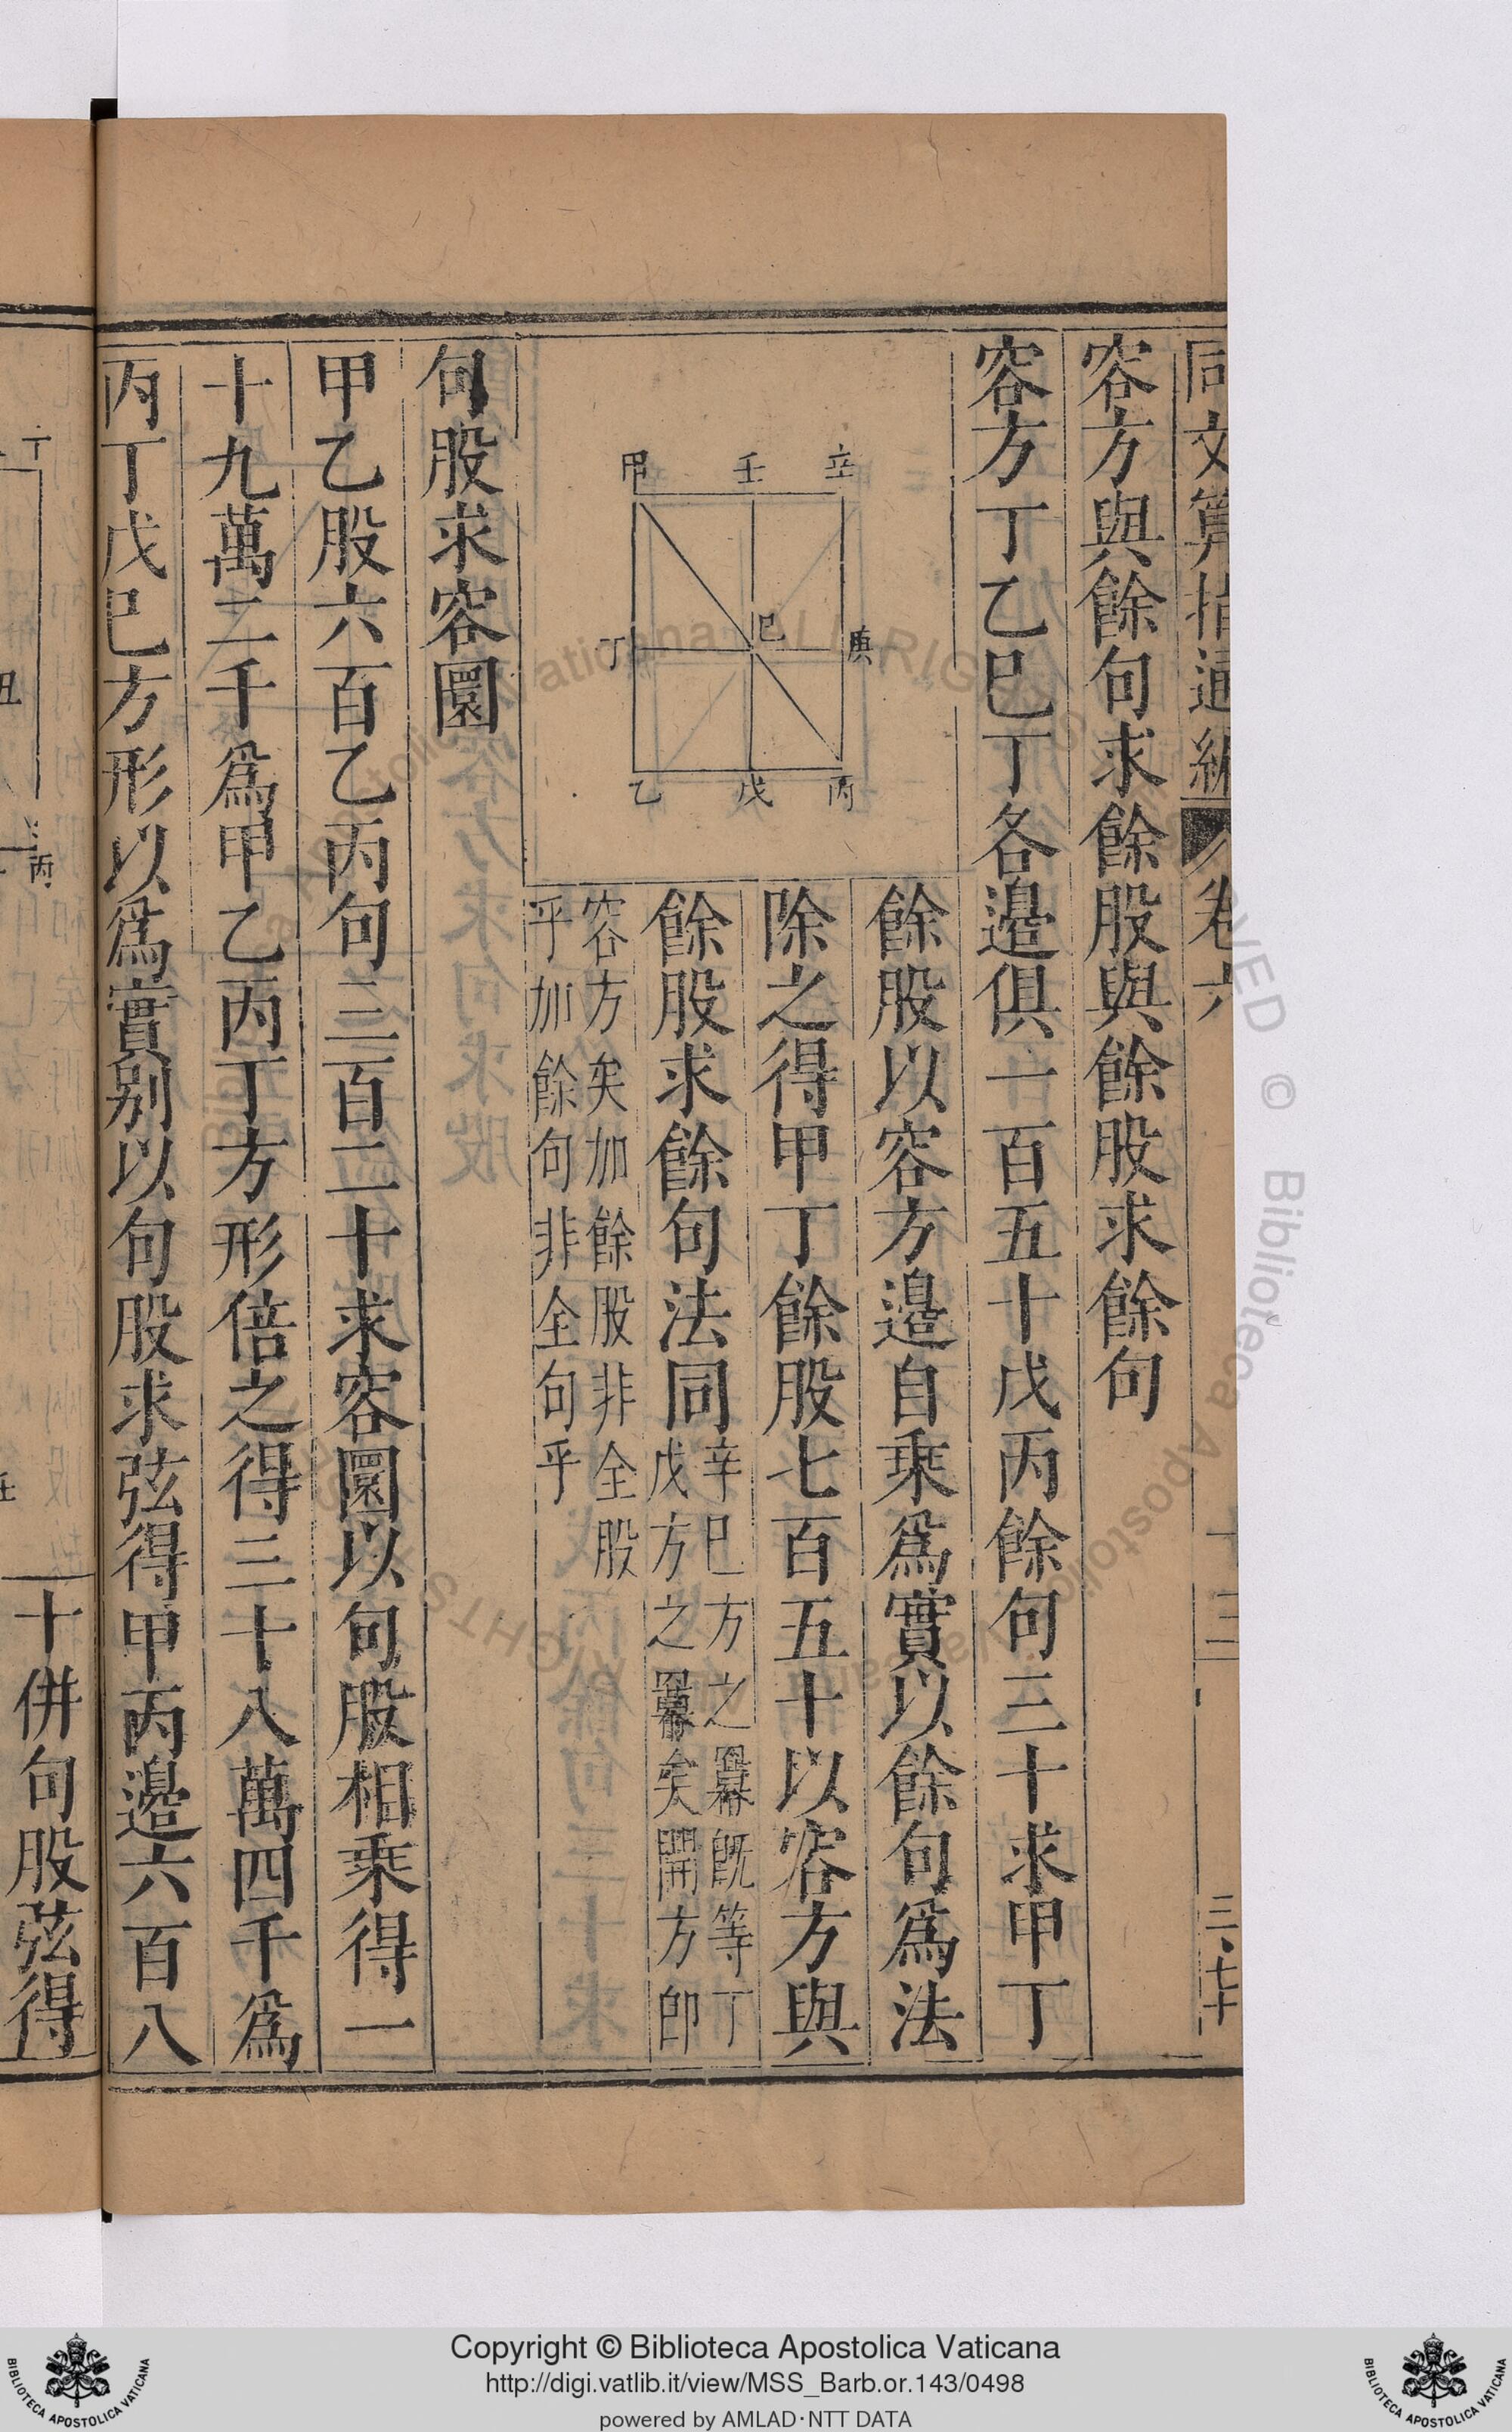 同文算指通編
卷六
容方與餘句求餘股與餘股求餘句
容方丁乙巳丁各邉俱一百五十戊丙餘句三十求甲丁
餘股以容方邉自乘爲實以餘句爲法
除之得甲丁餘股七百五十以容方與
餘股求餘句法同
辛巳方之羃旣等丁
戊方之羃矣開方卽
容方矣加餘股非全股
乎加餘句非全句乎
甲 壬 辛
丁 巳 庚
乙 戊 丙
句股求容圜
甲乙股六百乙丙句三百二十求容圜以句股相乘得一
十九萬二千爲甲乙丙丁方形倍之得三十八萬四千爲
丙丁戊巳方形以爲實别以句股求弦得甲丙邉六百八
丁
丑
丙
十併句股弦得
Copyright © Biblioteca Apostolica Vaticana
http://digi.vatlib.it/view/MSS_Barb.or.143/0498
powered by AMLAD·NTT DATA
BIBLIOTECA APOSTOLICA VATICANA
BIBLIOTECA APOSTOLICA VATICANA